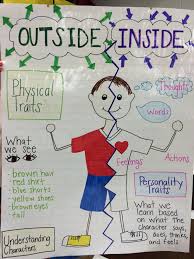 OUTSIDE INSIDE
Physical
Traits
Thoughts
Words
What
we see
Feelings
Actions
- brown hair
- red shirt
- blue shorts
- yellow shoes
- brown eyes
- tall
Personality
Traits
What we
learn based on
what the
character says,
does, thinks,
and feels
Understanding
Characters